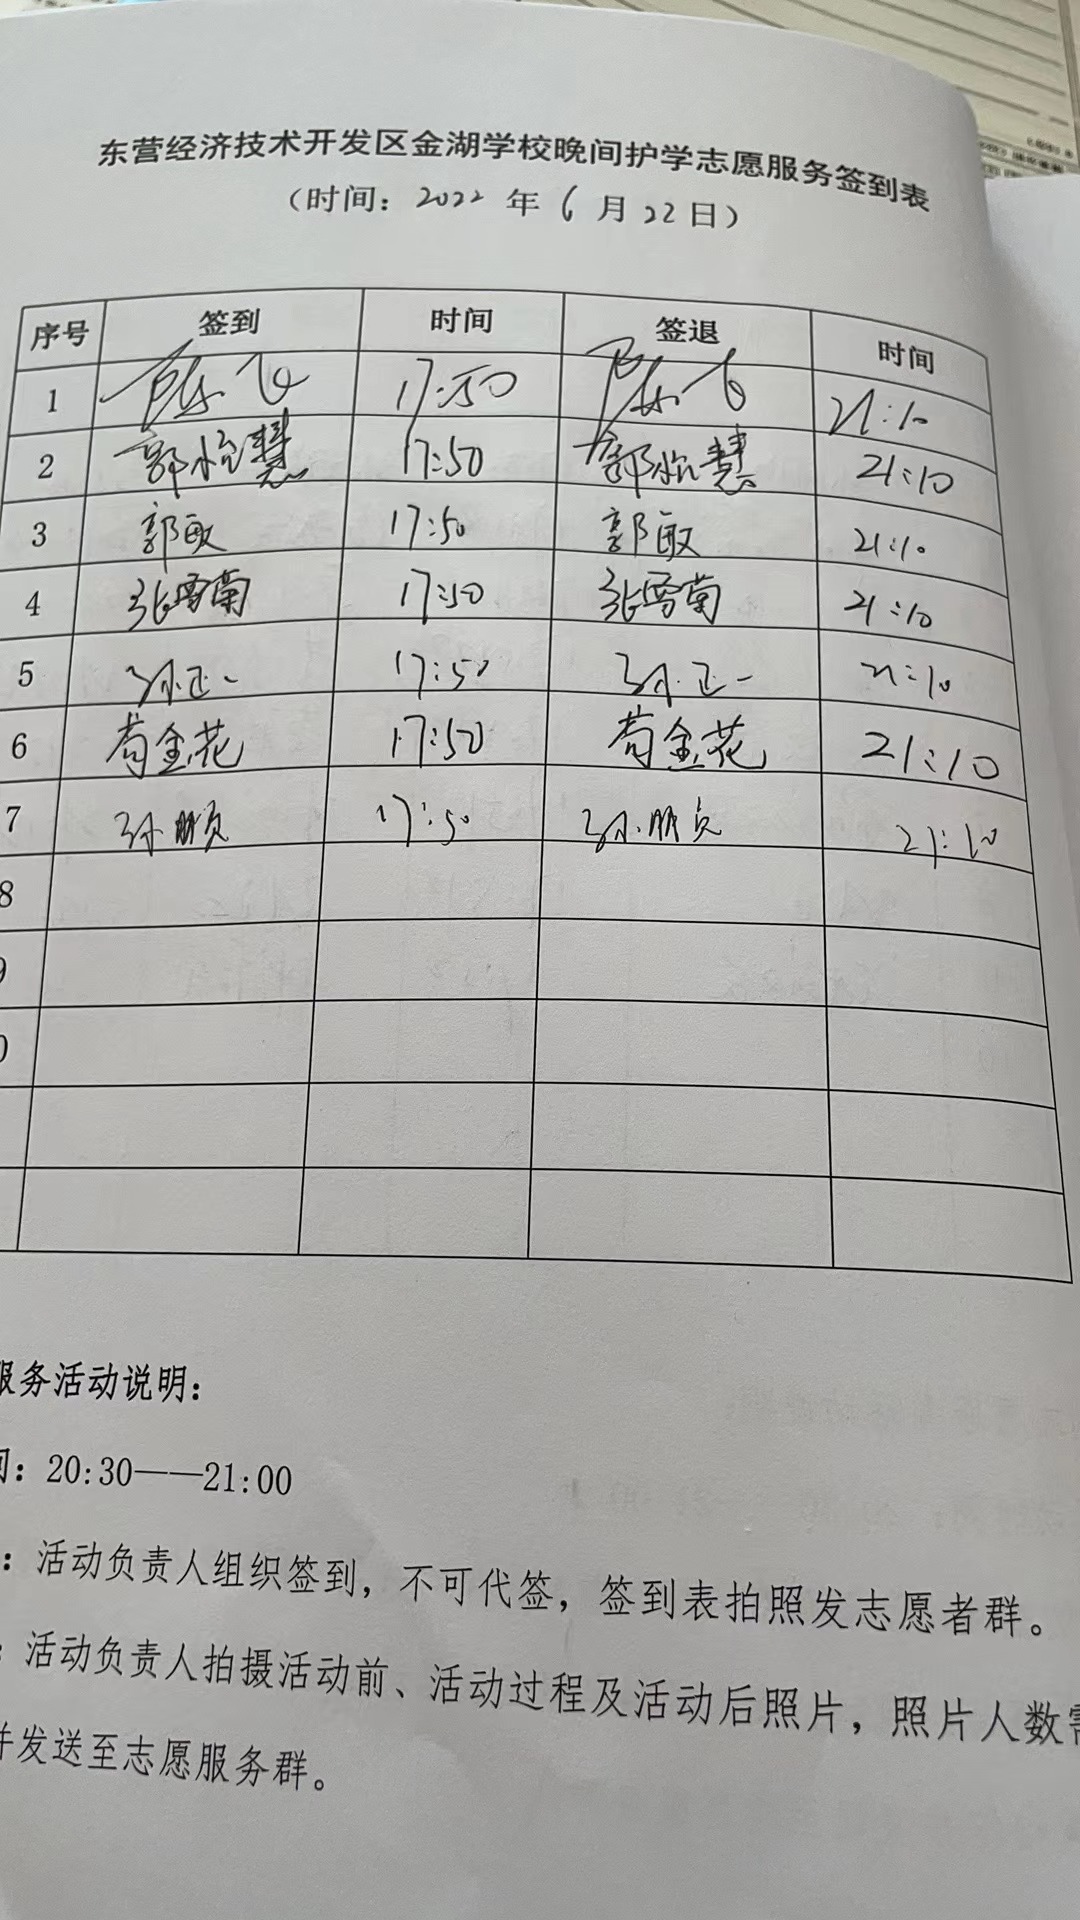 东营经济技术开发区金湖学校晚间护学志愿服务签到表
（时间：2022 年 6 月 22 日）
序号 签到 时间 签退 时间
1 17:50 21:10
2 郭怡慧 17:50 郭怡慧 21:10
3 郭敏 17:50 郭敏 21:10
4 张雪菊 17:50 张雪菊 21:10
5 孙正一 17:50 孙正一 21:10
6 苟金花 17:50 苟金花 21:10
7 17:50 21:10
8
9
0
服务活动说明：
间：20:30——21:00
：活动负责人组织签到，不可代签，签到表拍照发志愿者群。
：活动负责人拍摄活动前、活动过程及活动后照片，照片人数需
并发送至志愿服务群。